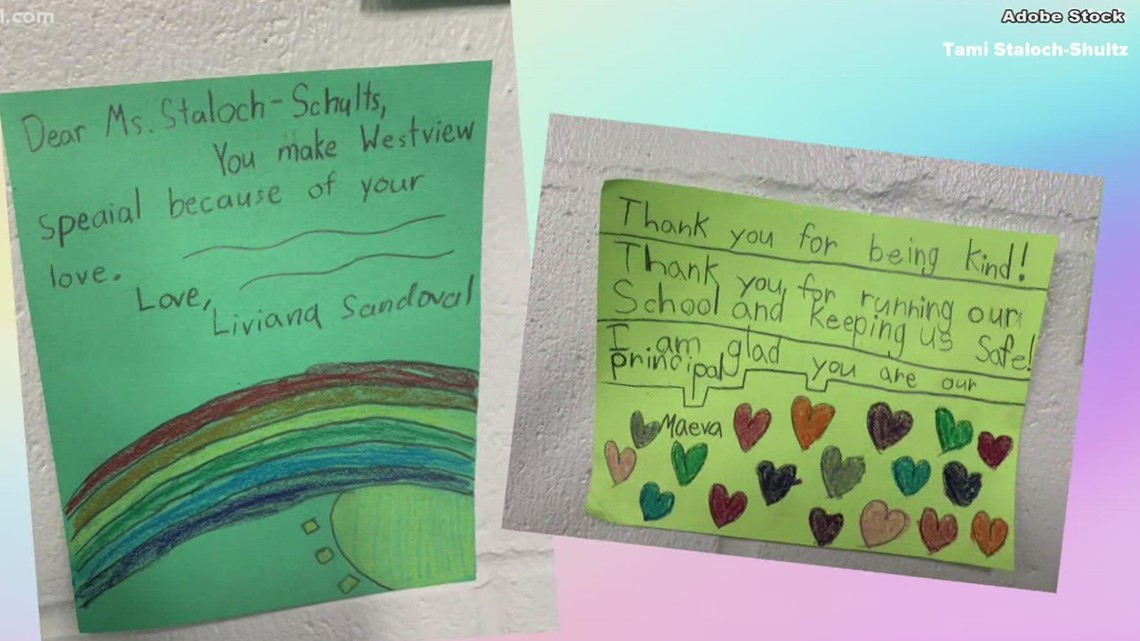 l.com
Adobe Stock
Tami Staloch-Shultz
Dear Ms. Staloch-Schults,
You make Westview
speaial because of your
love.
Love,
Liviana Sandoval
Thank you for being kind!
Thank you for running our
School and keeping us Safe!
I am glad you are our
principal
Maeva